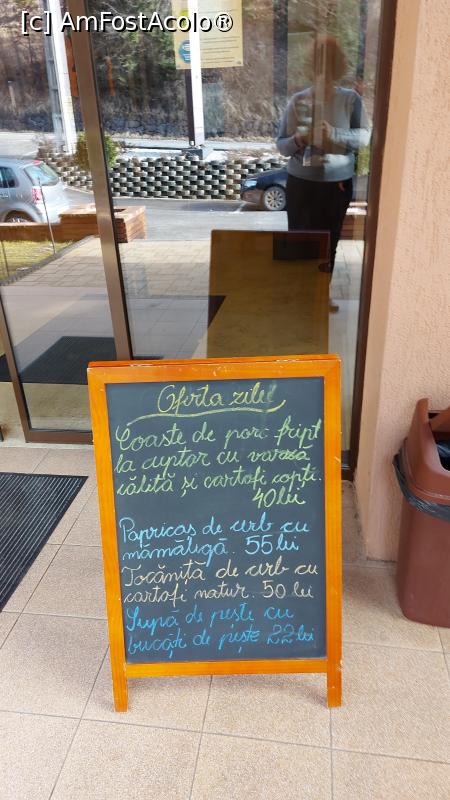 [c] AmFostAcolo®
Oferta zilei
Coaste de porc fript
la cuptor cu varză
călită și cartofi copți.
40 lei
Papricaș de cerb cu
mămăligă. 55 lei
Tocăniță de cerb cu
cartofi natur. 50 lei
Supă de pește cu
bucăți de pește 22 lei